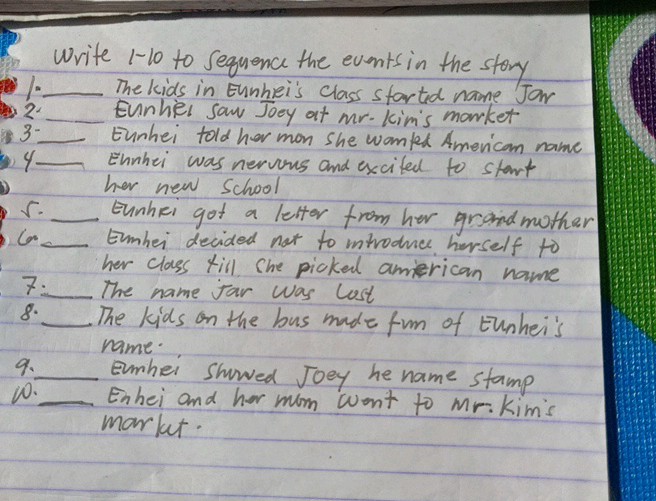 Write 1-10 to sequence the events in the story
1. ____ The kids in Eunhei's class startd name Jar
2. ____ Eunhei saw Joey at mr. Kim's market
3- ____ Eunhei told her mon she wanted American name
4 ____ Ehnhei was nervous and excited to start
her new school
5. ____ Eunhei got a letter from her grandmother
6. ____ Eunhei decided not to introduce herself to
her class till she picked american name
7. ____ The name jar was lost
8. ____ The kids on the bus made fun of Eunhei's
name.
9. ____ Eunhei showed Joey he name stamp
10. ____ Enhei and her mom went to Mr. Kim's
market.